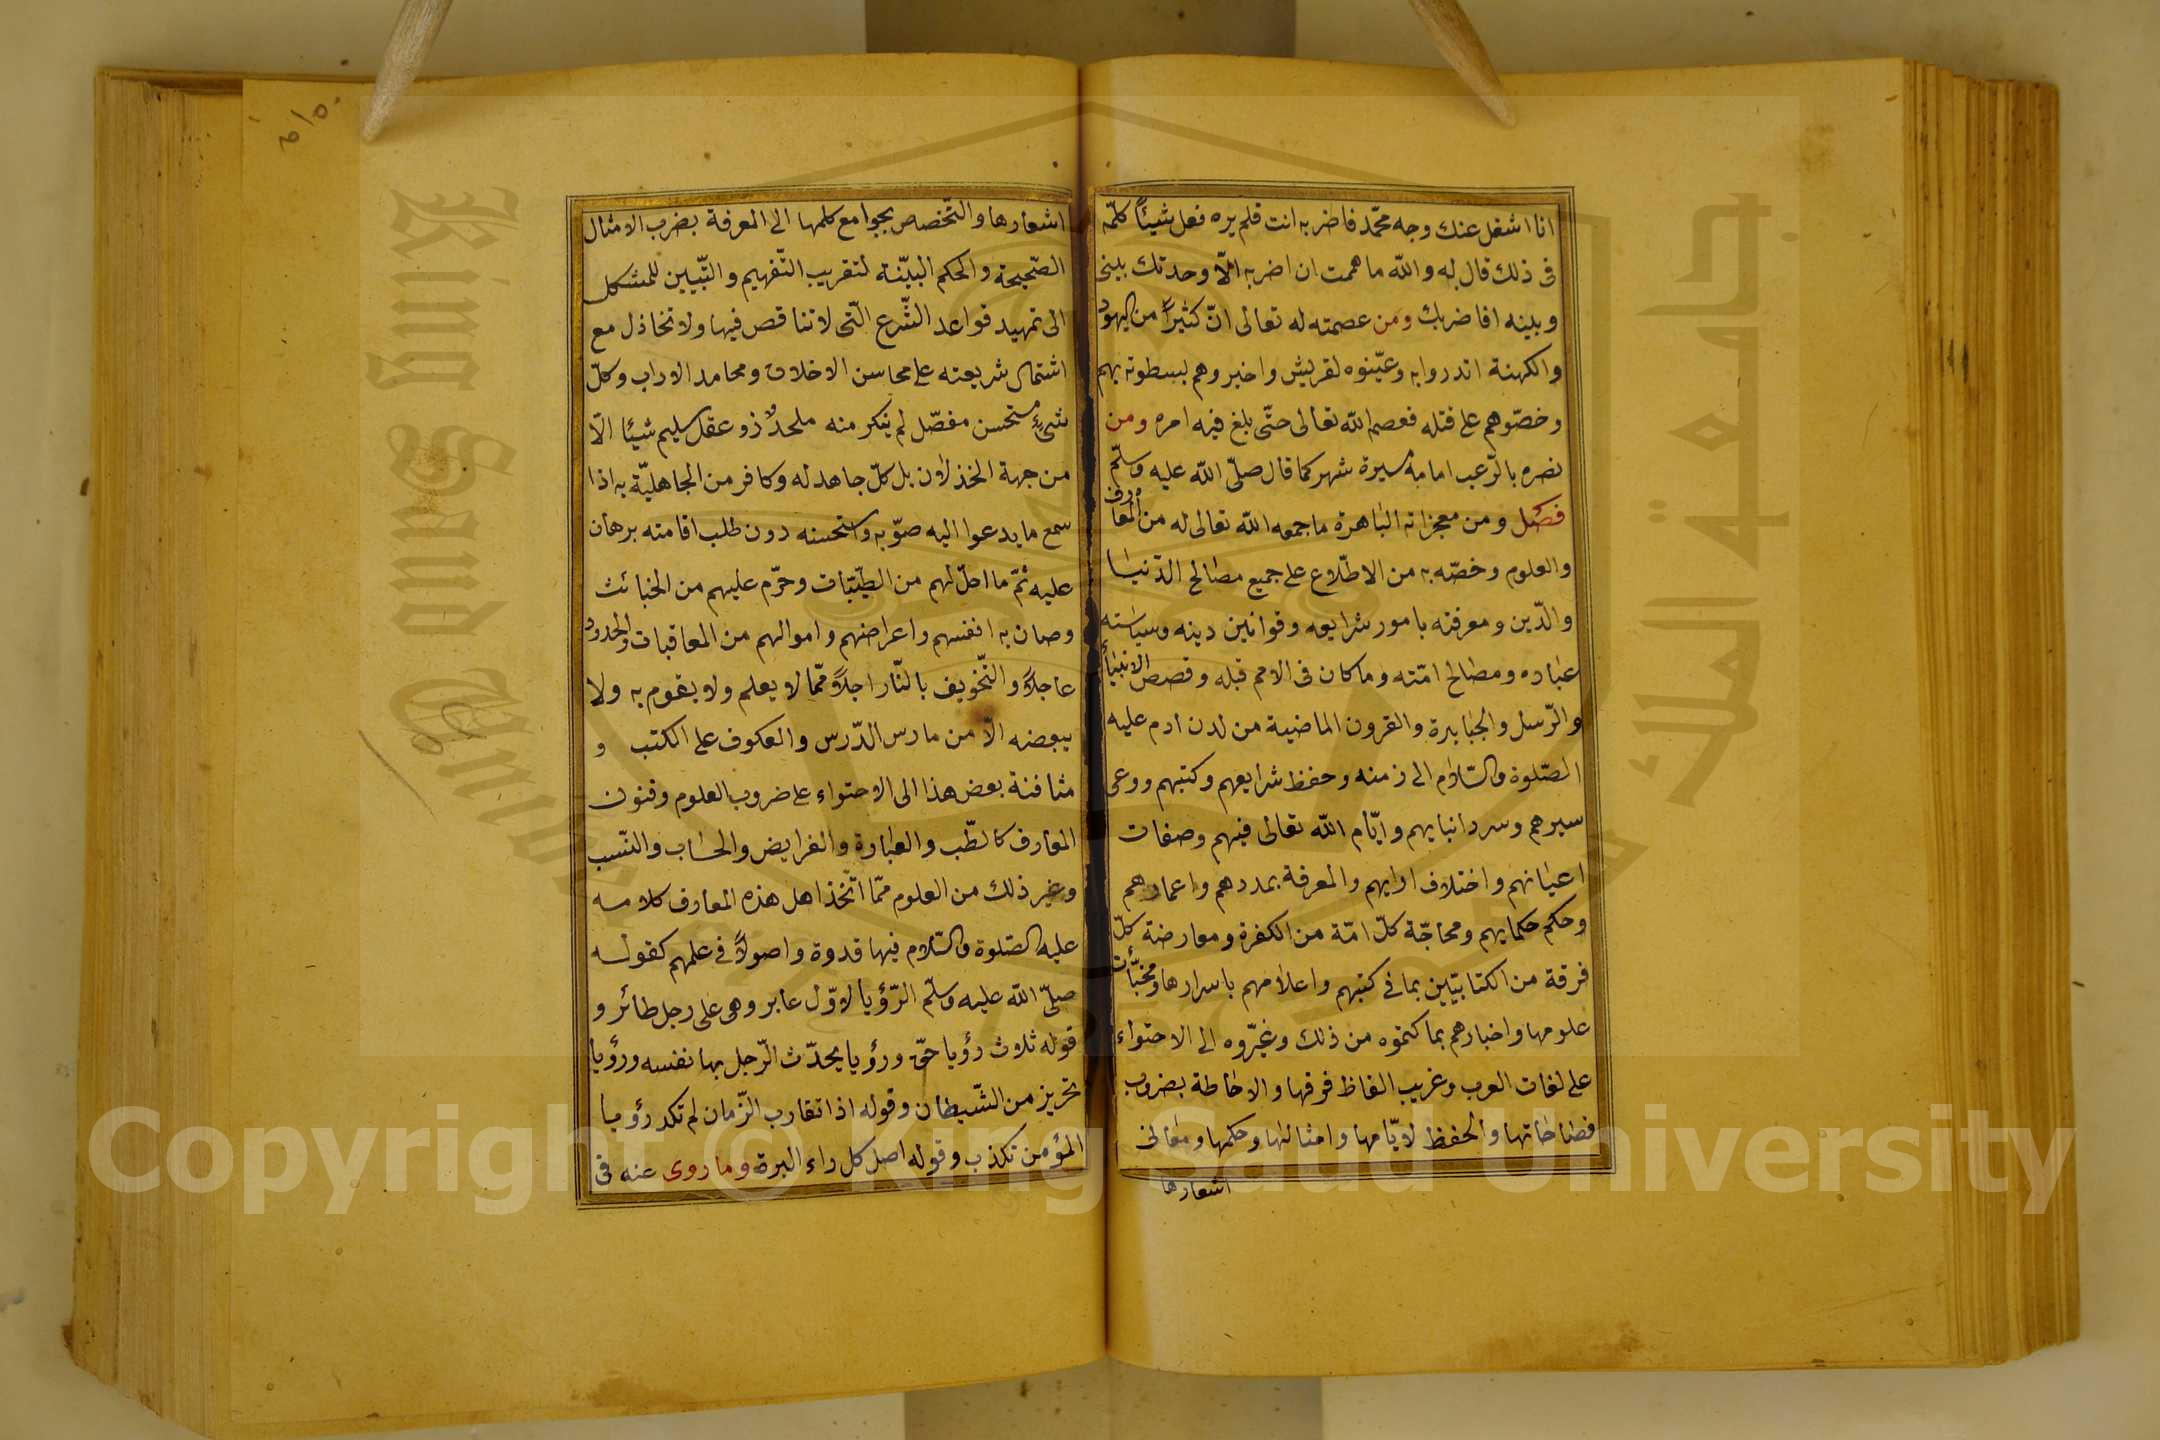 انا اشغل عنك وجه محمّد فاضربه انت فلم يره فعل شيئاً كلّمه
فى ذلك قال له والله ما هممت ان اضربه الّا وجدتك بينى
وبينه افاضربك ومن عصمته له تعالى انّ كثيراً من اليهود
والكهنة انذروا به وعيّنوه لقريش واخبروهم بسطوته بهم
وحضّوهم على قتله فعصمه الله تعالى حتّى بلغ فيه امره ومن
نصره بالرّعب امامه مسيرة شهر كما قال صلّى الله عليه وسلّم
فصل ومن معجزاته الباهرة ما جمعه الله تعالى له من المعارف
والعلوم وخصّه به من الاطّلاع على جميع مصالح الدّنيا
والدّين ومعرفته بامور شرايعه وقوانين دينه وسياسته
عباده ومصالح امّته وما كان فى الامم قبله وقصص الانبياء
والرّسل والجبابرة والقرون الماضية من لدن ادم عليه
الصّلوة والسّلام الى زمنه وحفظ شرايعهم وكتبهم ووعى
سيرهم وسرد انبايهم وايّام الله تعالى فيهم وصفات
اعيانهم واختلاف ارايهم والمعرفة بمددهم واعمارهم
وحكم حكمايهم ومحاجّة كلّ امّة من الكفرة ومعارضة كلّ
فرقة من الكتابيّين بما فى كتبهم واعلامهم باسرارها ومخبّآت
علومها واخبارهم بما كتموه من ذلك وغيّروه الى الاحتواء
على لغات العرب وغريب الفاظ فرقها والاحاطة بضروب
فصاحاتها والحفظ لايّامها وامثالها وحكمها ومعانى
اشعارها
اشعارها والتّخصص بجوامع كلمها الى المعرفة بضرب الامثال
الصّحيحة والحكم البيّنة لتقريب التّفهيم والتّبيين للمشكل
الى تمهيد قواعد الشّرع الّتى لا تناقص فيها ولا تخاذل مع
اشتمال شريعته على محاسن الاخلاق ومحامد الاداب وكلّ
شىء مستحسن مفصّل لم ينكر منه ملحد ذو عقل سليم شيئا الّا
من جهة الخذلان بل كلّ جاهد له وكافر من الجاهليّة به اذا
سمع ما يدعوا اليه صوّبه واستحسنه دون طلب اقامته برهان
عليه ثمّ ما احلّ لهم من الطيّبات وحرّم عليهم من الخبائث
وصان به انفسهم واعراضهم واموالهم من المعاقبات والحدود
عاجلاً والتّخويف بالنّار اجلاً ممّا لا يعلم ولا يقوم به ولا
ببعضه الّا من مارس الدّرس والعكوف على الكتب و
مثافنة بعض هذا الى الاحتواء على ضروب العلوم وفنون
المعارف كالطّب والعبارة والفرايض والحساب والنّسب
وغير ذلك من العلوم ممّا اتّخذ اهل هذه المعارف كلامه
عليه الصّلوة والسّلام فيها قدوة واصولاً فى علمهم كقوله
صلّى الله عليه وسلّم الرّؤيا لاوّل عابر وهى على رجل طائر و
قوله ثلاث رؤيا حقّ ورؤيا يحدّث الرّجل بها نفسه ورؤيا
تحزين من الشّيطان وقوله اذا تقارب الزّمان لم تكد رؤيا
المؤمن تكذب وقوله اصل كل داء البردة وما روى عنه فى
King Saud University
جامعة الملك
Copyright © King Saud University